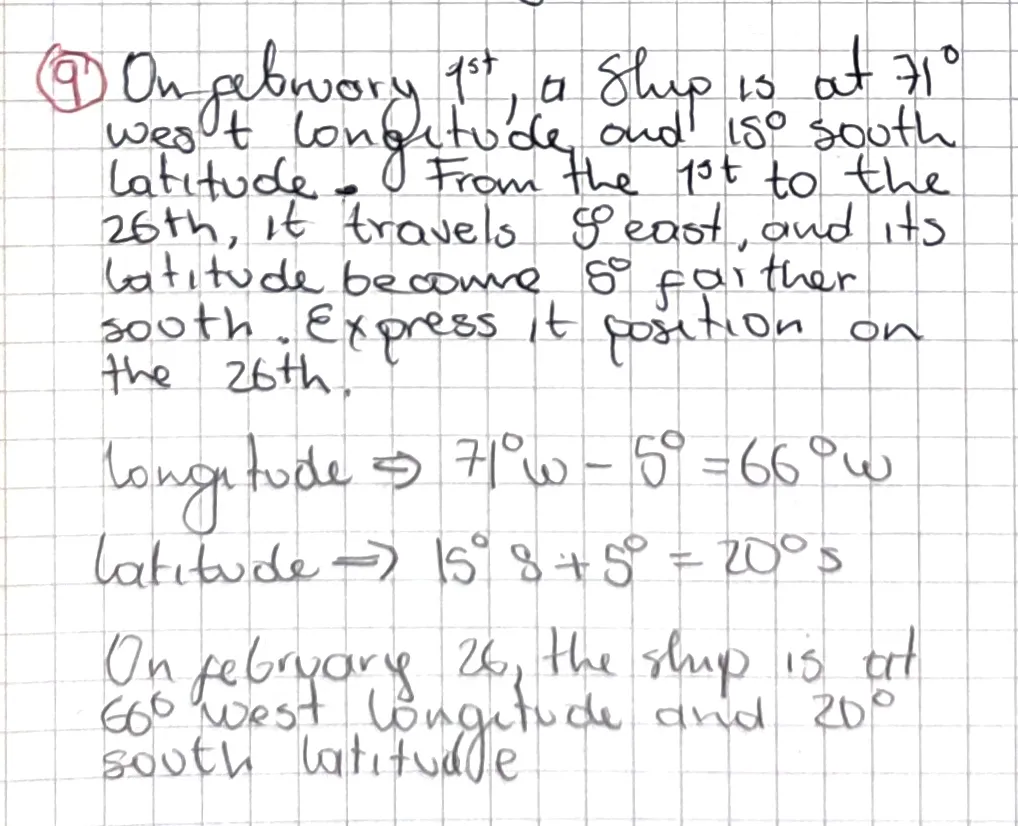 9) On february 1st, a ship is at 71°
west longitude and 15° south
latitude. From the 1st to the
26th, it travels 5° east, and its
latitude become 5° farther
south. Express it position on
the 26th.
longitude ⇒ 71°w - 5° = 66°w
latitude ⇒ 15° S + 5° = 20° s
On february 26, the ship is at
66° west longitude and 20°
south latitude